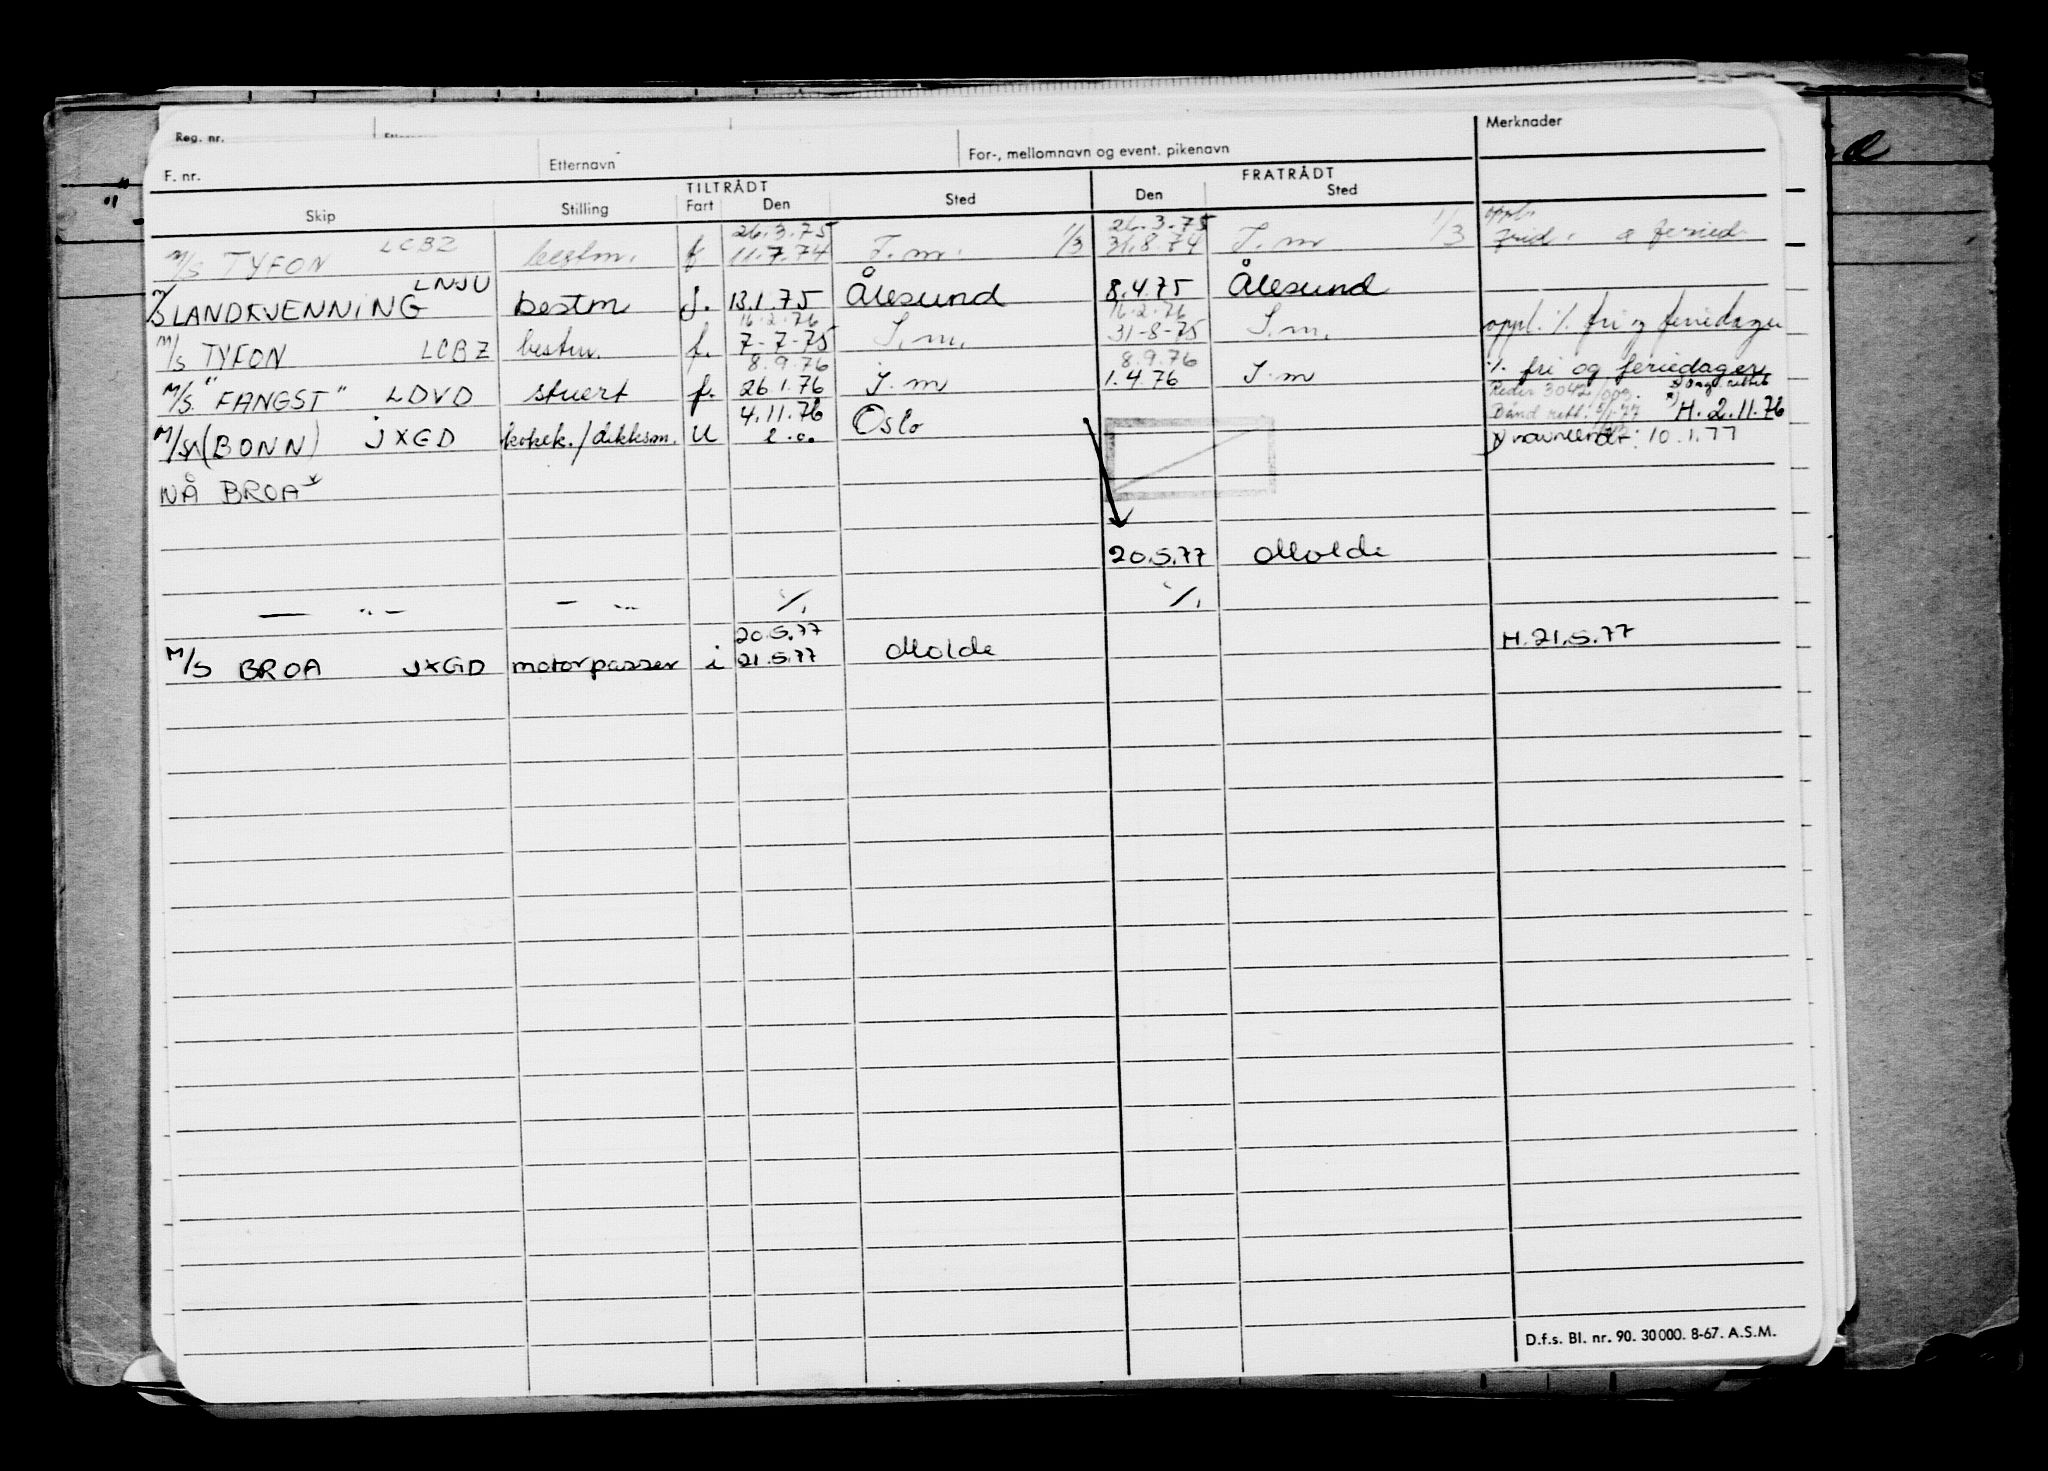 Reg. nr.
F. nr. Etternavn For-, mellomnavn og event. pikenavn Merknader
TILTRÅDT FRATRÅDT
Skip Stilling Fart Den Sted Den Sted
26.3.75 26.3.75 oppl.
M/S TYFON LCBZ bestm. f 11.7.74 I.m. 1/3 31.8.74 I.m 1/3 frid. o feried.
LNJU
M/S LANDKJENNING bestm j. 13.1.75 Ålesund 8.4.75 Ålesund
16.2.76 16.2.76
M/S TYFON LCBZ bestm. f. 7-7-75 I.m. 31-8-75 I.m. oppl. % fri og feriedager
8.9.76 8.9.76
M/S "FANGST" LDVD stuert f. 26.1.76 I.m 1.4.76 I.m % fri og feriedager
Reder 3042/
4.11.76 H. 2.11.76
M/S (BONN) JXGD kokek./dekksm. U e.o. Oslo x) navneendr. 10.1.77
NÅ BROA x
20.5.77 Molde
— " — — " — % %
20.5.77 H. 21.5.77
M/S BROA JXGD motorpasser i 21.5.77 Molde
D.f.s. Bl. nr. 90. 30000. 8-67. A.S.M.